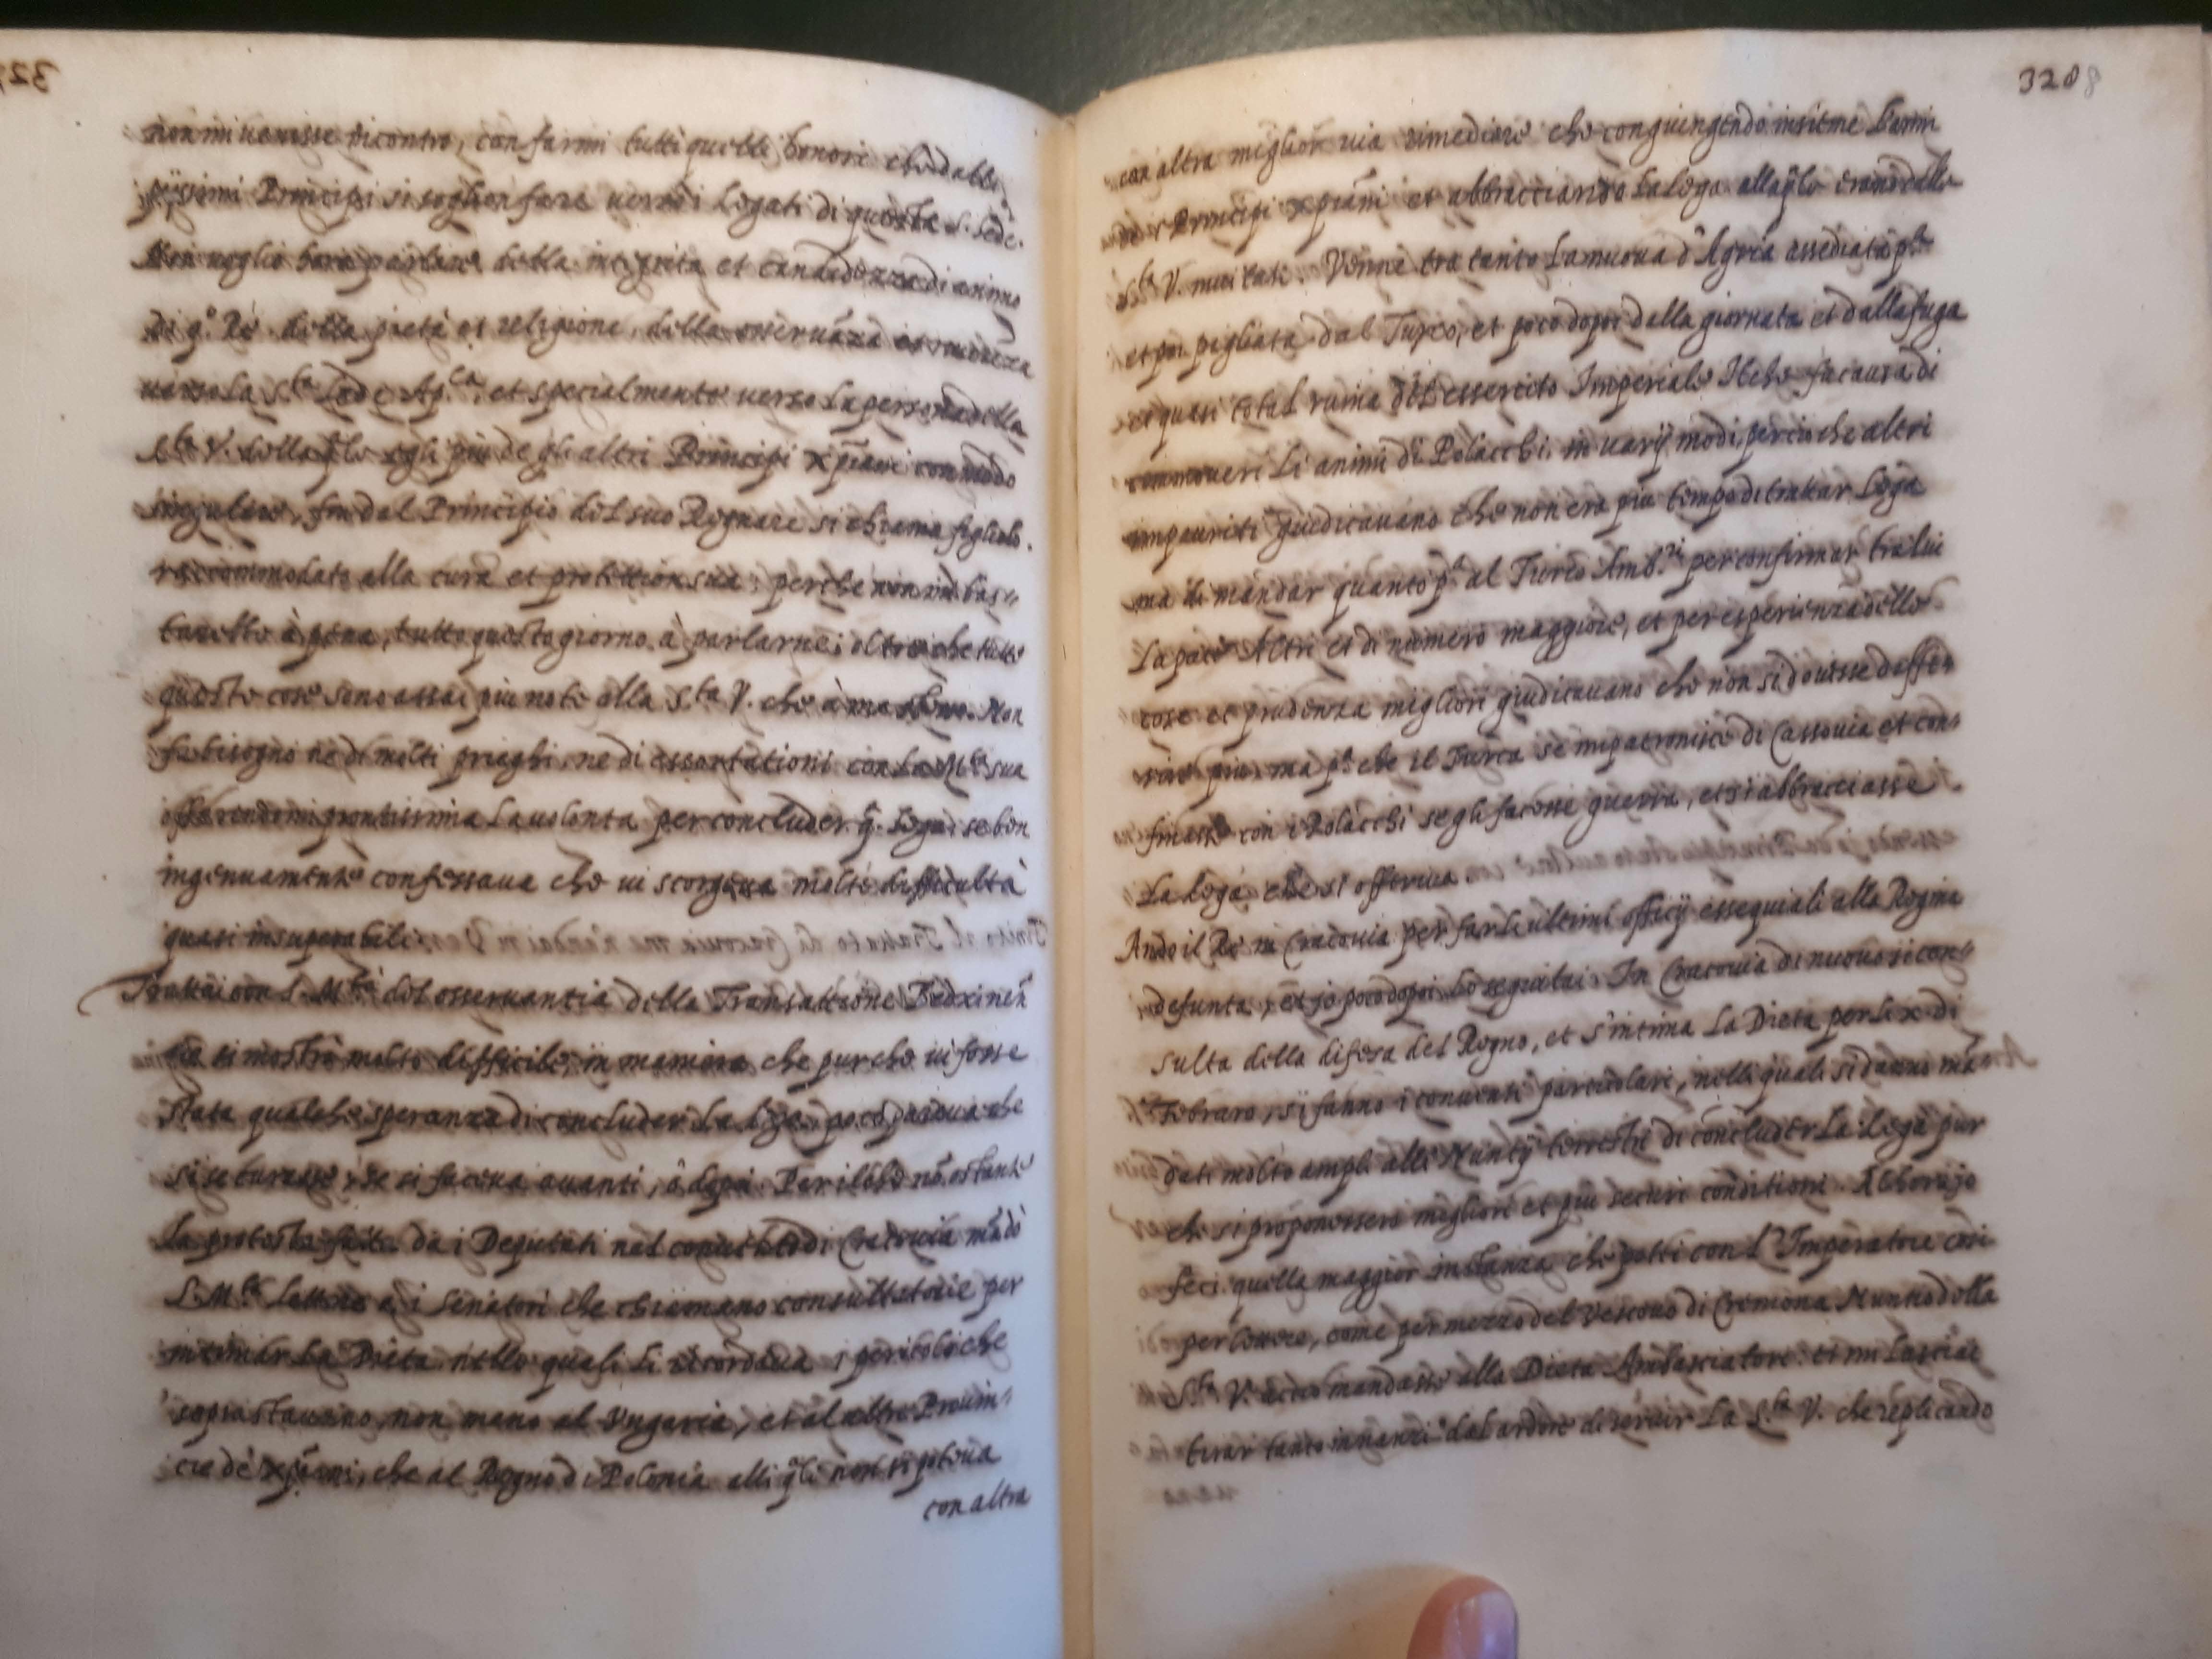 non mi venisse incontro, con farmi tutti quelli honori che dalli
pijssimi Principi si soglion fare verso i Legati di questa S. Sede.
Non voglio hora parlare della integrità et candidezza di animo
di q.o Rè della pietà et religione, della osservãza et
verso la S.ta Sede Ap.ca, et specialmente verso la persona della
S.tà V. dalla q̃le egli più de gli altri Principi xp̃iani con modo
singulare, fin dal Principio del suo Regnare si chiama figliolo
raccommodato alla cura et protettion sua; perche non mi bas-
tarebbe à pena, tutto questo giorno à parlarne; oltre che tutte
queste cose sono assai più note alla S.tà V. che à me stesso. Non
fu bisogno ne di molti prieghi, ne di essortationi con la M.tà sua
offerendomi prontissima la volonta per concluder q̃. Lega; se ben
ingenuamente confessava che vi scorgeva molte difficultà
quasi insuperabili.
Trattai con S. M.tà del osservantia della Transattione Bedzinen̄
che si mostrò molto difficile, in maniera che pur che vi fosse
stata qualche speranza di concluder la lega, poco pareva che
si se si faceva avanti, ò dopoi. Per il che nõ ostante
la protesta fatta da i Deputati nel convento di Cracovia mãdò
S. M.tà lettere a i Senatori che chiamano consultatorie per
intimar la Dieta nelle quali li ricordava i pericoli che
soprastavano non meno al Vngaria, et al altre Provin-
cie dè xp̃iani, che al Regno di Polonia alli q̃li non si poteva
con altra
328 8
con altra miglior via rimediare che congiungendo insieme l'armi
de i Principi xp̃iani et abbracciando la Lega alla q̃le erano dalla
S.tà V. invitati. Venne tra tanto la nuova d'Agria assediata p.a
et poi pigliata dal Turco, et poco dopoi della giornata et dalla fuga
et quasi total ruina del essercito Imperiale. Il che fu causa di
commoveri li animi di Polacchi, in varij modi, percioche altri
impauriti giudicavano che non era più tempo di trattar Lega
ma di mandar quanto p.a al Turco Amb.ri per confirmar tra lui
la pace. Altri et di numero maggiore, et per esperienza delle
cose et prudenza migliori giudicavano che non si dovesse differ
rire più, ma p.a che il Turca se impatronisce di Cassovia et con-
finasse con i Polacchi se gli facesse guerra, et si abbracciasse
la Lega che si offeriva
Andò il Rè in Cracovia per far li ultimi officij essequiali alla Regina
defunta, et io poco dopoi lo seguitai. In Cracovia di nuovo si con-
sulta della difesa del Regno, et s'intima la Dieta per li x di
Febraro, si fanno i conventi particolari, nelli quali si danno mã-
dati molto ampli alli Nuntij terrestri di concluder la Lega pur
che si proponessero migliori et più secure conditioni. Allhora io
feci quella maggior instanza che potti con l'Imperatore così
per lettere, come per mezzo del Vescovo di Cremona Nuntio della
S.tà V. accio mandasse alla Dieta Ambasciatori: et mi lasciai
tirar tanto innanzi dal ardore di servir la S.tà V. che replicando